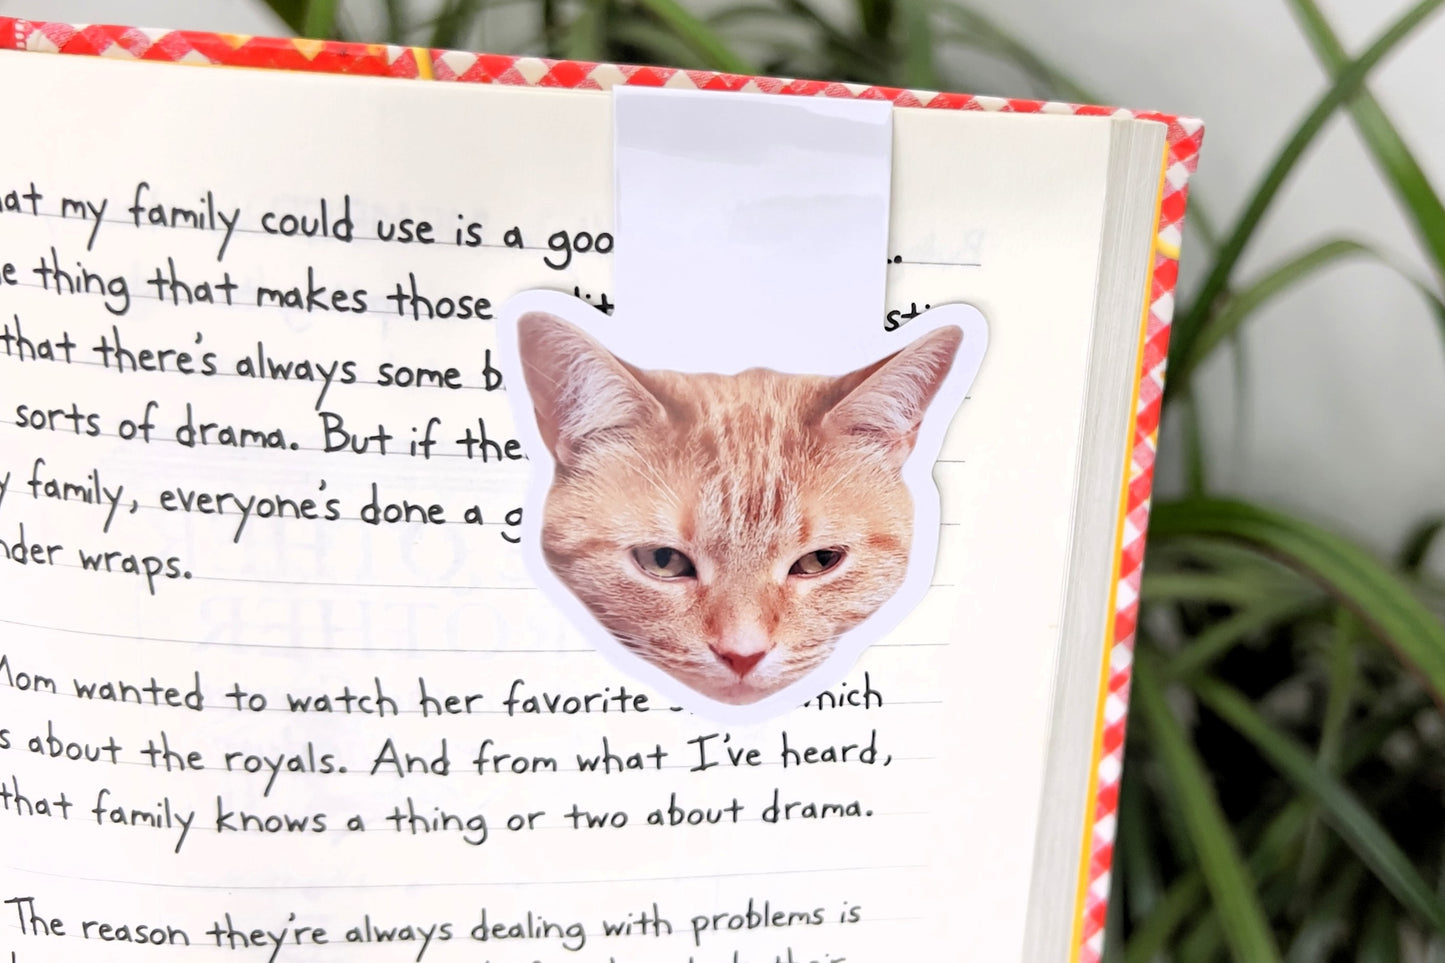 at my family could use is a goo
e thing that makes those
that there's always some b
sorts of drama. But if the
y family, everyone's done a g
nder wraps.
Mom wanted to watch her favorite
s about the royals. And from what I've heard,
that family knows a thing or two about drama.
The reason they're always dealing with problems is